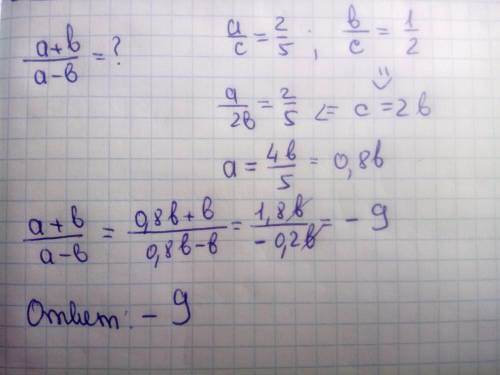 (a+b)/(a-b) = ?
a/c = 2/5 ; b/c = 1/2
a/2b = 2/5 <= c = 2b
a = 4b/5 = 0,8b
(a+b)/(a-b) = (0,8b+b)/(0,8b-b) = 1,8b/-0,2b = -9
Ответ: -9